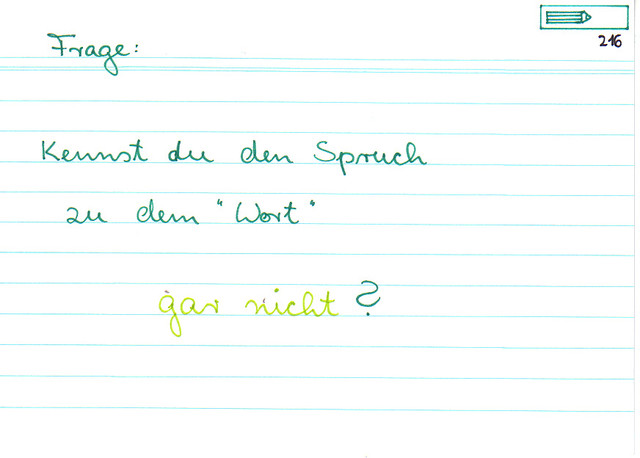 216
Frage:
Kennst du den Spruch
zu dem "Wort"
gar nicht?